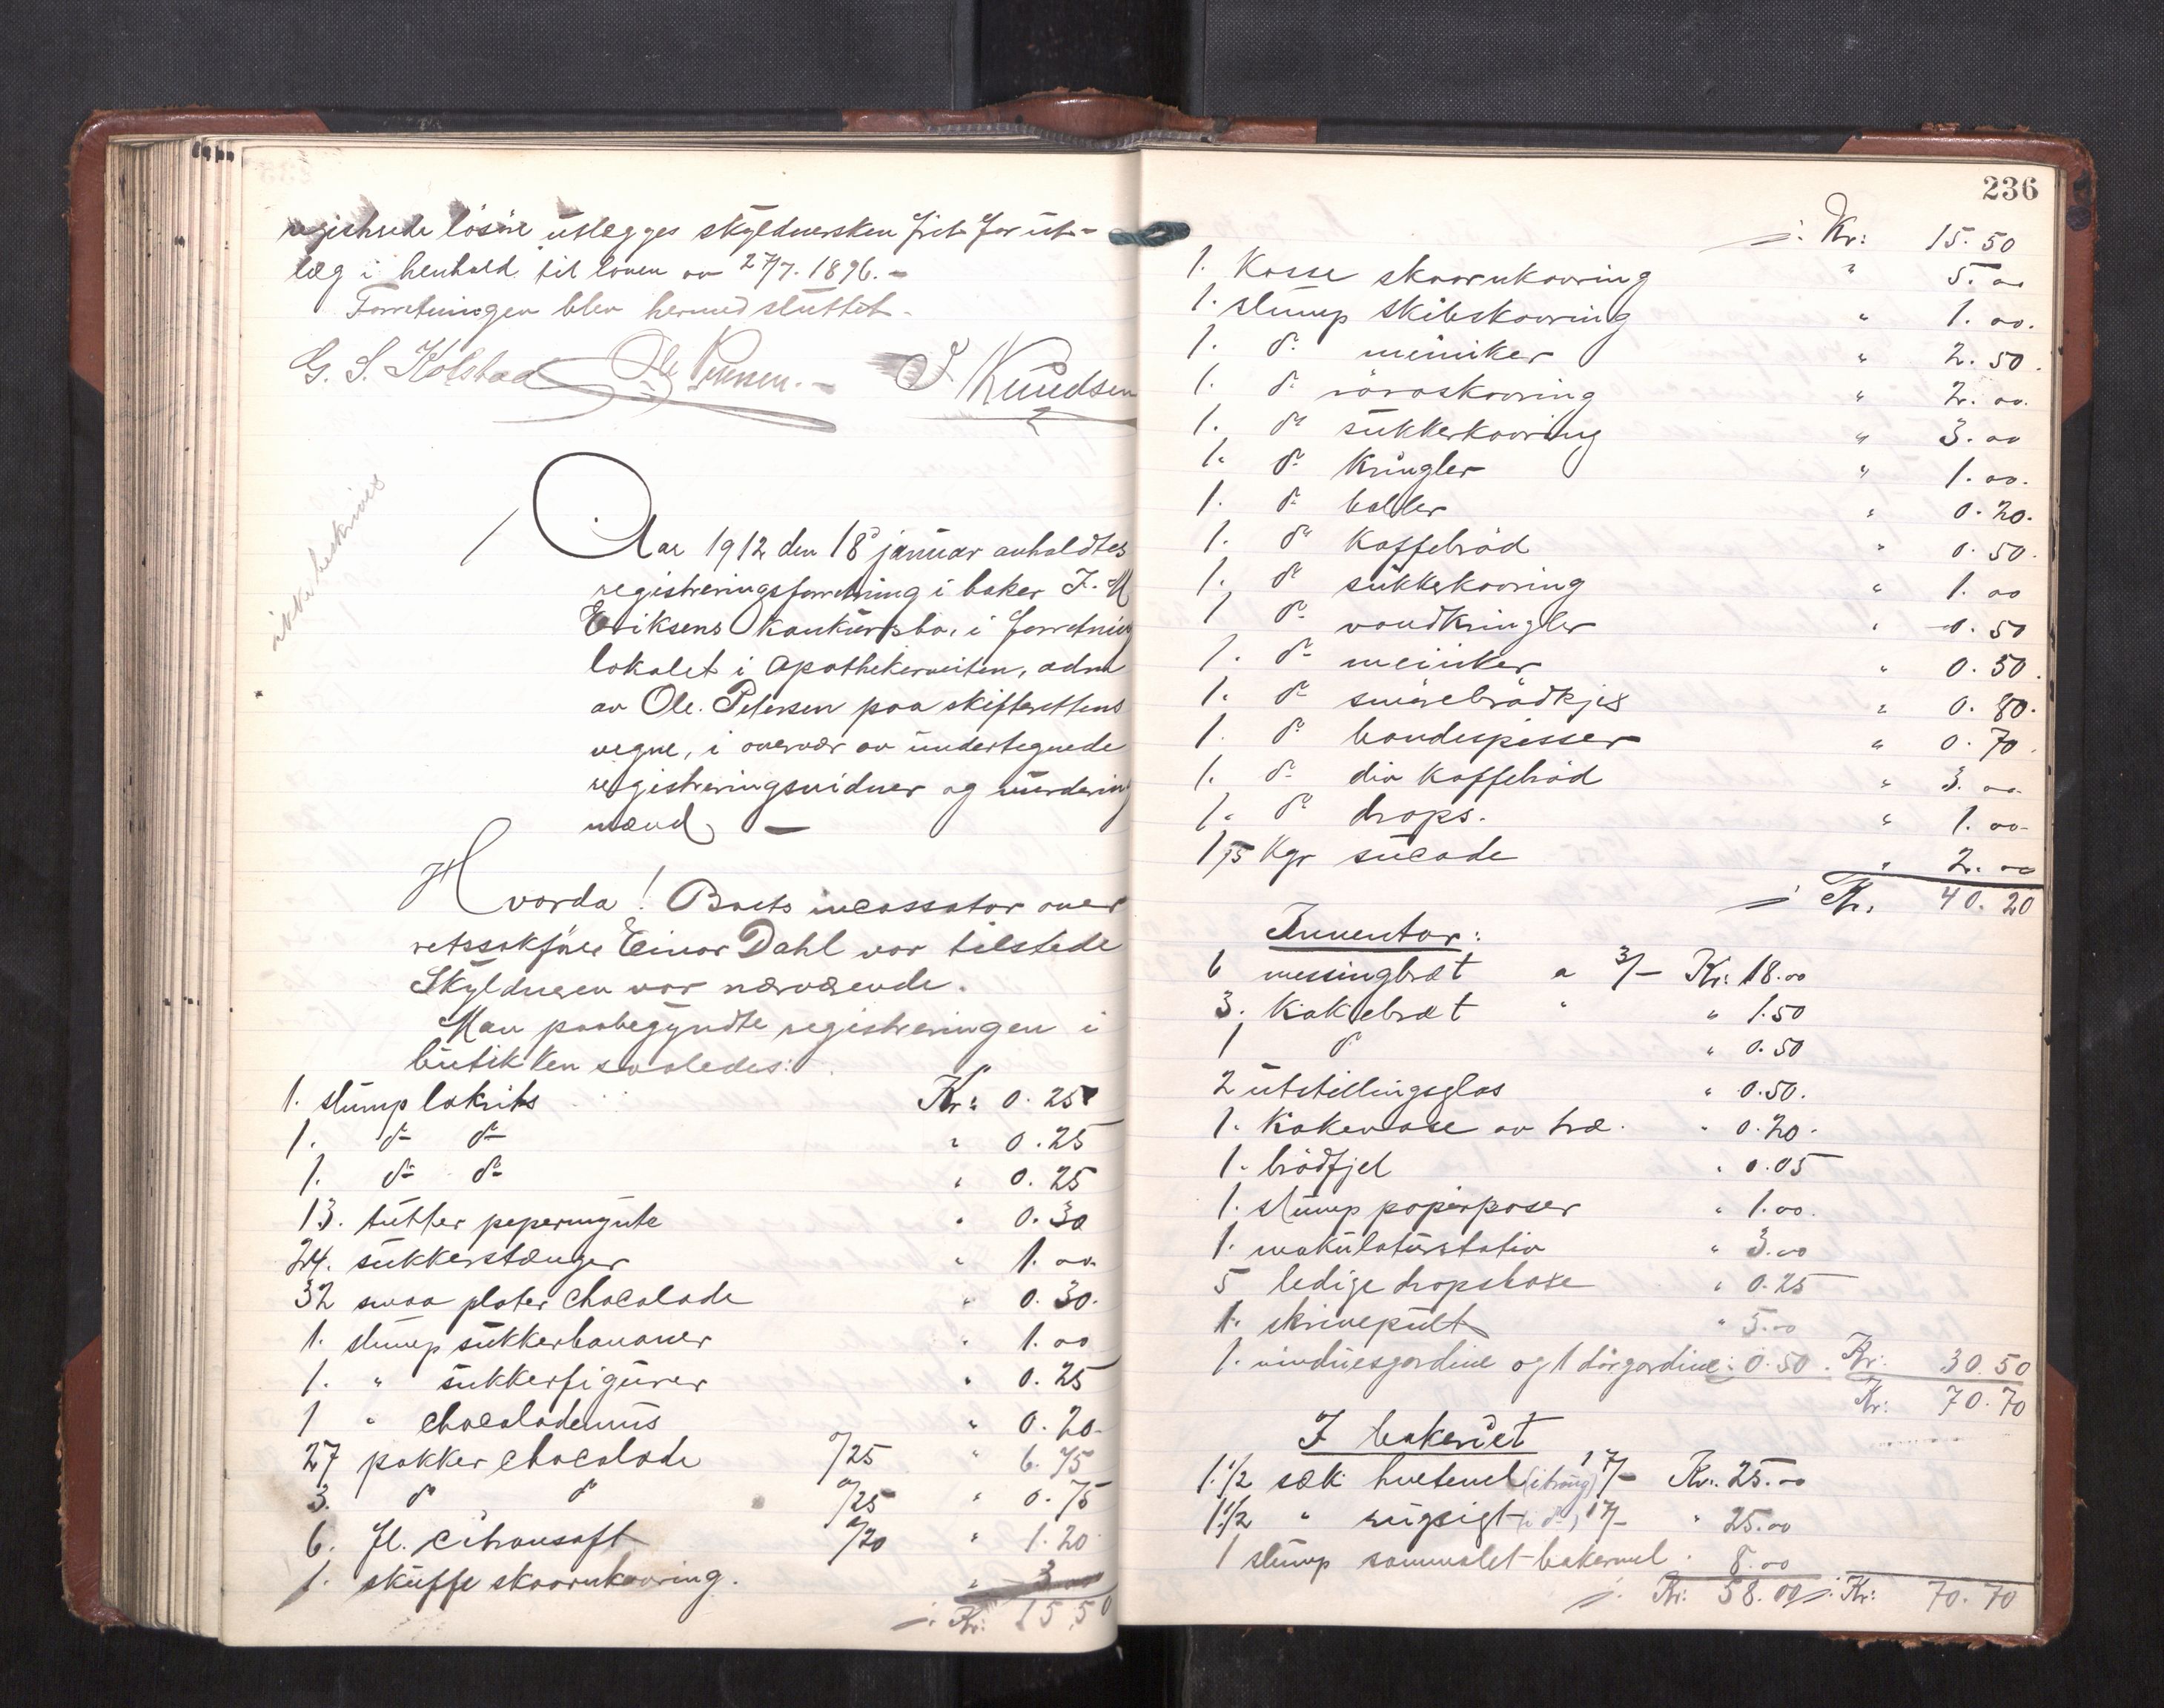 registrerede løsøre utlægges skyldnersken frit for ut-
læg i henhold til loven av 27/7. 1896. -
Forretningen blev hermed sluttet.
G. S. Kolstad Ole Petersen. - J. Knudsen
ikke beskrives
Aar 1912 den 18de januar anholdtes
registreringsforretning i baker J. M
Eriksens konkursbo, i forretning
lokalet i Apothekerveiten, adm
av Ole. Petersen paa skifterettens
vegne, i overvær av undertegnede
registreringsvidner og vurdering
mænd. -
Hvorda! Boets incassator over
retssakfører Einar Dahl var tilstede
Skyldneren var nærværende.
Man paabegyndte registreringen i
butikken saaledes:
1. slump lakrits Kr: 0.25
1. do do " 0.25
1. do do " 0.25
13. tutter pepermynte " 0.30
24. sukkerstænger " 1.00
32 smaa plater chocolade " 0.30.
1. slump sukkerbananer " 1.00
1. " sukkerfigurer " 0.25
1 " chocolademus " 0.20.
27 pakker chocolade a/25 " 6.75
3. do do a/25 " 0.75
6. fl. citronsaft a/20 " 1.20
1. skuffe skaarukavring. " 3.00
j. Kr: 15,50
236
j. Kr: 15.50
1. Kasse skaarnkavring " 5.00
1. slump skibskavring " 1.00.
1. do " 2.50.
1. do røroskavring " 2.00.
1. do sukkerkavring " 3.00
1. do kringler " 1.00.
1. do boller " 0.20.
1. do kaffebrød " 0.50.
1. do sukkekavring " 1.00
1 do vandkringler " 0.50
1. do " 0.50.
1. do smørebrødkjex " 0.80.
1. do bondepisser " 0.70.
1. do div kaffebrød " 3.00
1. do drops. " 1.00
1,75 Kgr sucade " 2.00
j Kr. 40.20
Inventar:
6 messingbræt a 3/- Kr: 18.00
3. kakebræt " " 1.50
1 do " 0.50
2 utstillingsglas " 0.50.
1. kakevase av træ. " 0.20.
1. brødfjel " 0.05
1. slump papirposer " 1.00.
1. makulaturstativ " 3.00
5 ledige dropsbokse " 0.25
1. skrivepult " 5.00
1. vinduesgardine og 1 dørgardine: 0.50. Kr: 30.50
Kr: 70.70
I bakeriet
1.1/2 sæk hvetemel (i brug) 17/- Kr. 25.00
1.1/2 " rugsigt (i do) 17/- " 25.00
1 slump sammalet bakermel. 8.00
j. Kr: 58.00 j. Kr: 70.70